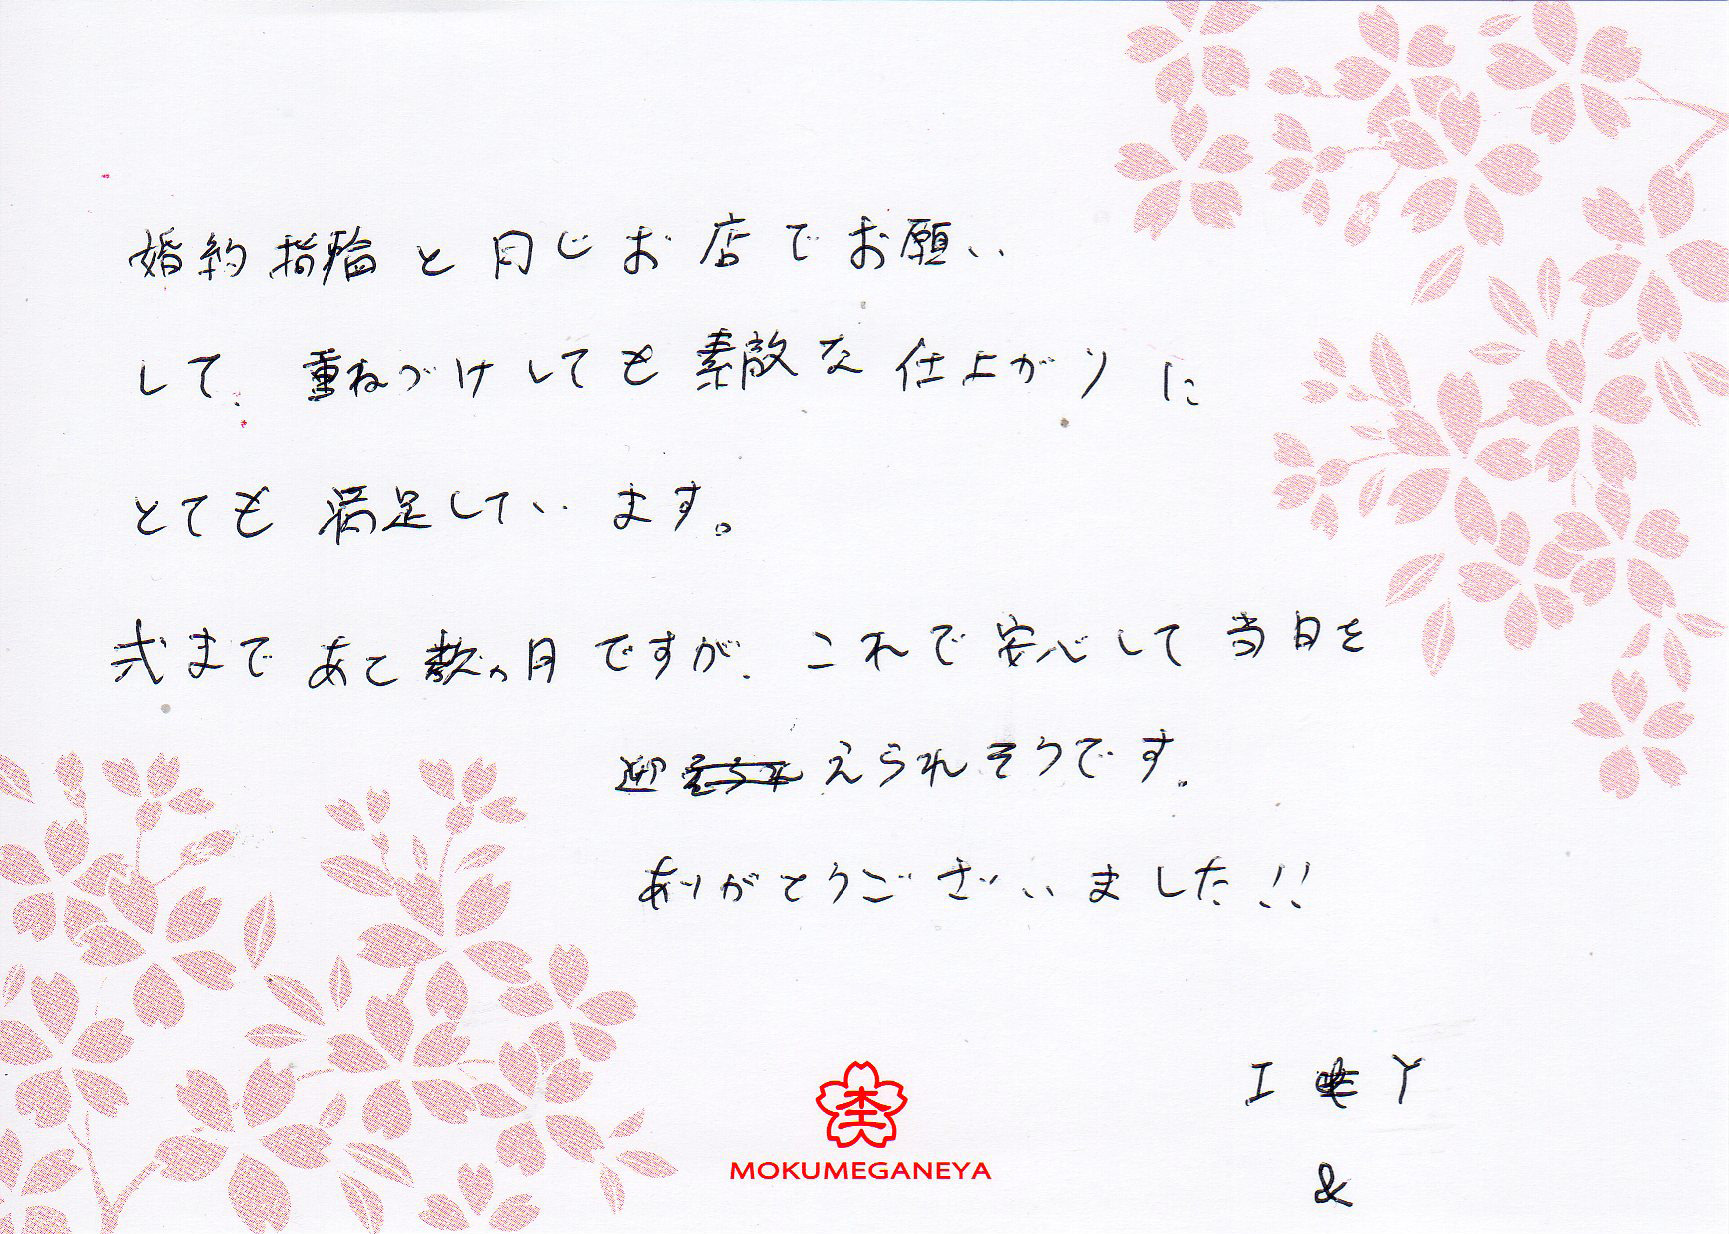 婚約指輪と同じお店でお願い
して、重ねづけしても素敵な仕上がりに
とても満足しています。
式まであと数ヶ月ですが、これで安心して当日を
迎えられそうです。
ありがとうございました!!
I Y
&
MOKUMEGANEYA